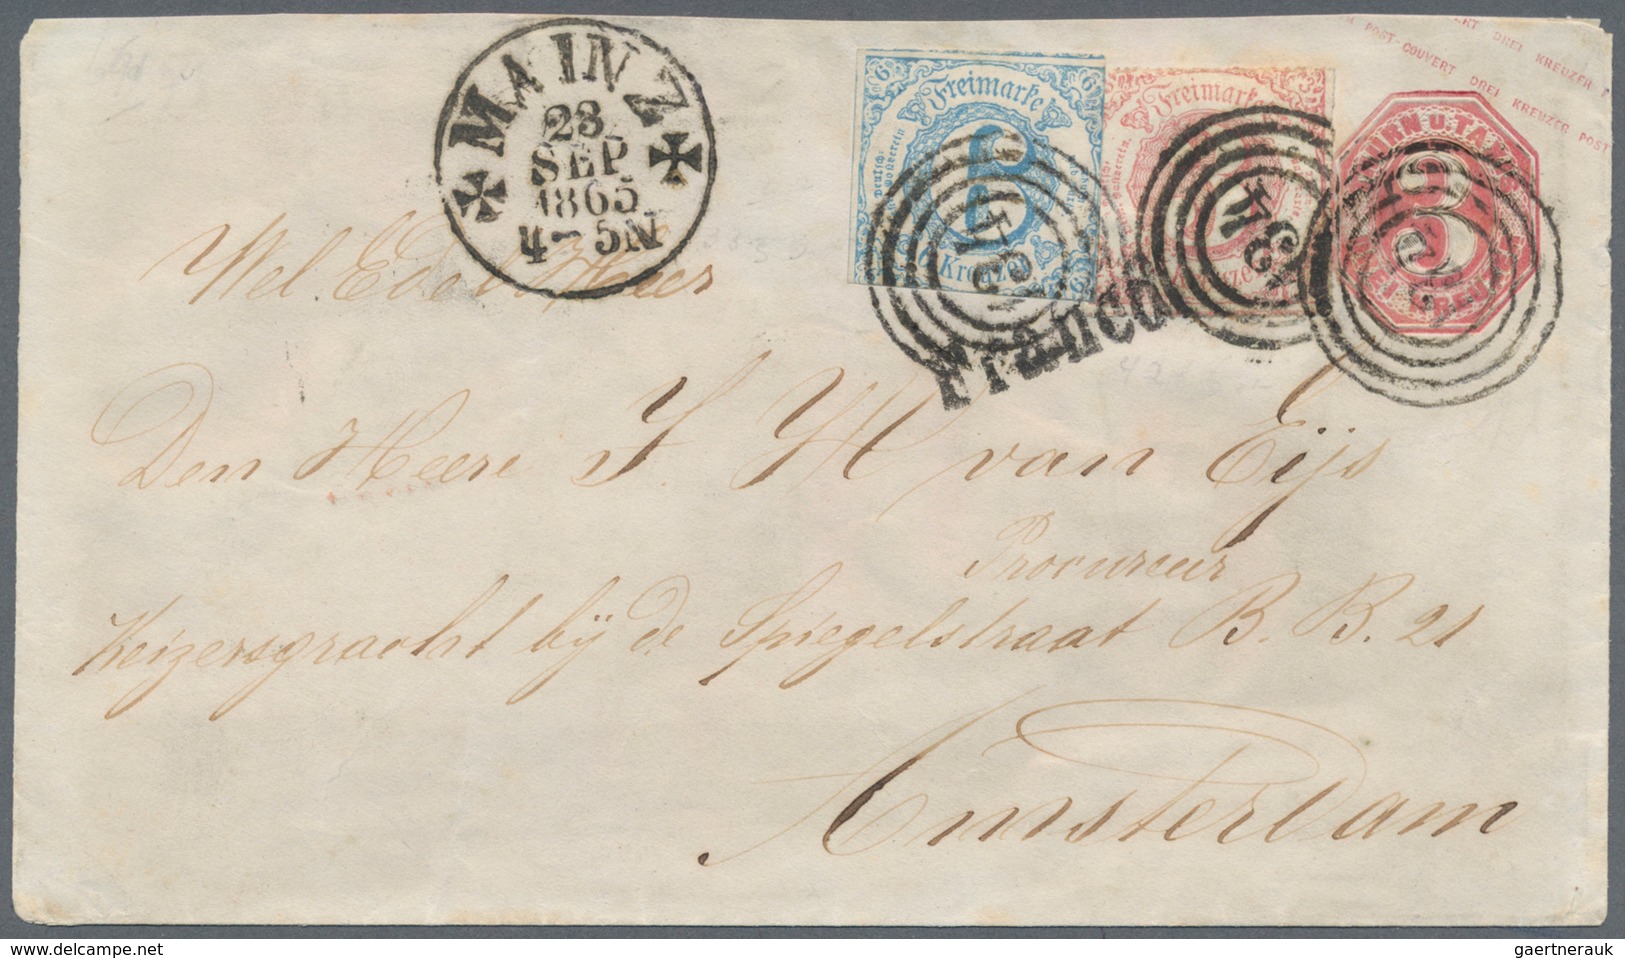 POST-COUVERT DREI KREUZER POST
DREI KREUZER
MAINZ
23
SEP
1865
4-5N
6
Freimarke
6 Kreuzer
Freimarke
THURN U. TAXIS
3
DREI KREUZER
134
134
134
Franco
Wel Edele Heer
Den Heere J M van Eijs
Procureur
Keizersgracht bij de Spiegelstraat B. B. 21
Amsterdam
www.delcampe.net
gaertnerauk